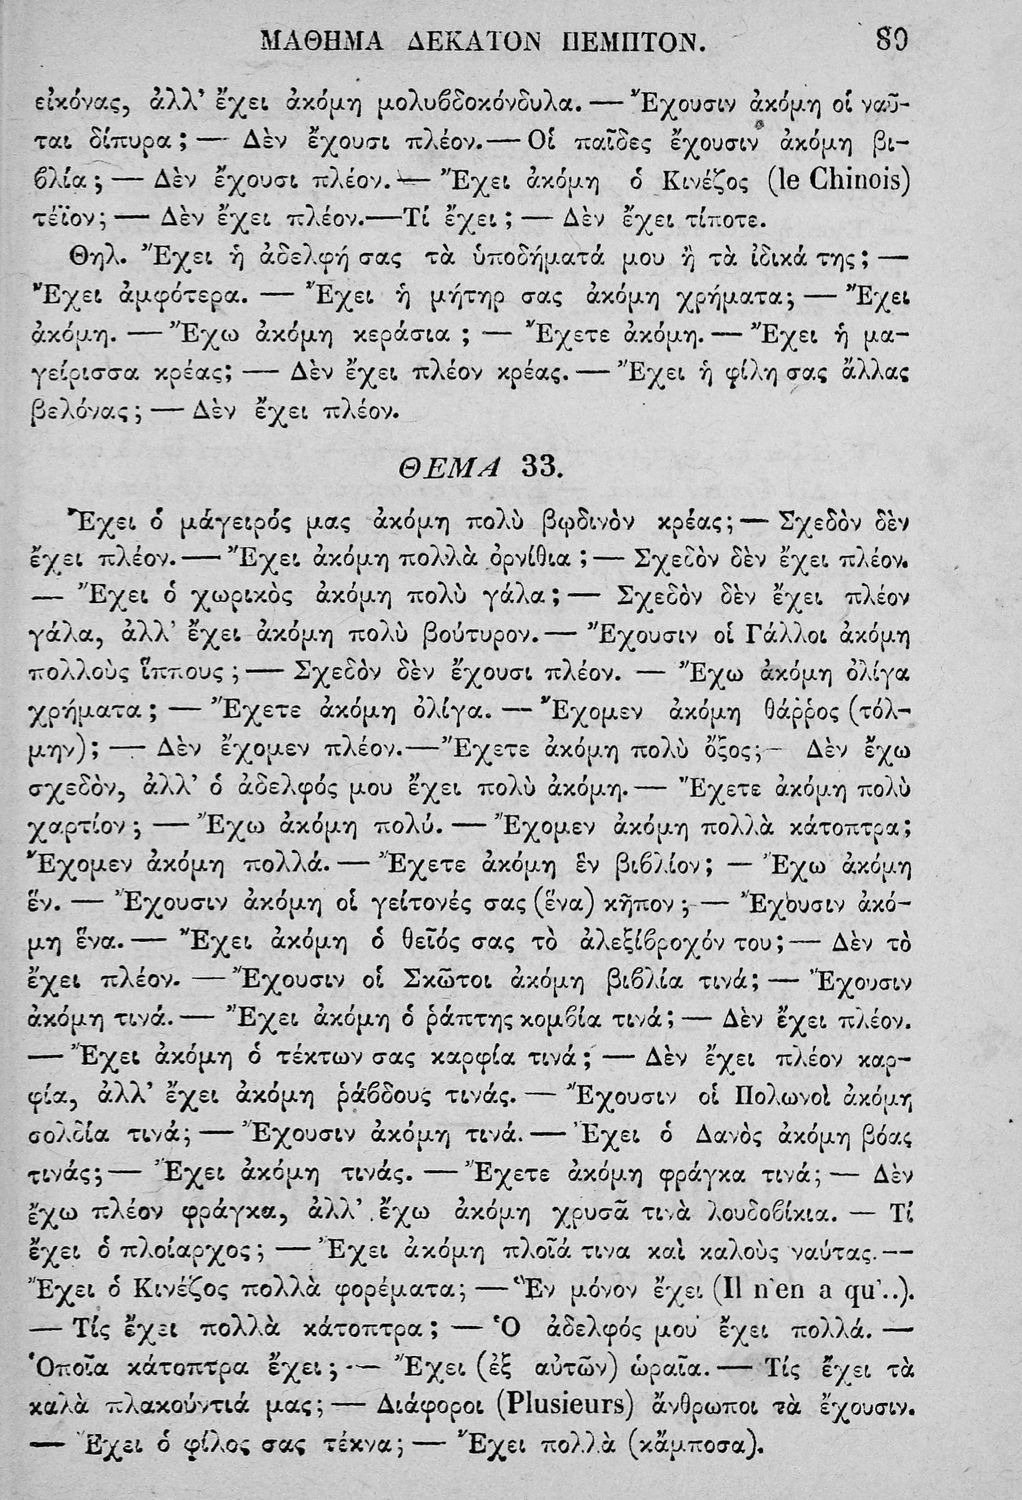 ΜΑΘΗΜΑ ΔΕΚΑΤΟΝ ΠΕΜΠΤΟΝ. 89
εἰκόνας, ἀλλ’ ἔχει ἀκόμη μολυβδοκόνδυλα. — Ἔχουσιν ἀκόμη οἱ ναῦ-
ται δίπυρα; — Δὲν ἔχουσι πλέον. — Οἱ παῖδες ἔχουσιν ἀκόμη βι-
βλία; — Δὲν ἔχουσι πλέον. — Ἔχει ἀκόμη ὁ Κινέζος (le Chinois)
τέϊον; — Δὲν ἔχει πλέον. — Τί ἔχει; — Δὲν ἔχει τίποτε.
Θηλ. Ἔχει ἡ ἀδελφή σας τὰ ὑποδήματά μου ἢ τὰ ἰδικά της; —
Ἔχει ἀμφότερα. — Ἔχει ἡ μήτηρ σας ἀκόμη χρήματα; — Ἔχει
ἀκόμη. — Ἔχω ἀκόμη κεράσια; — Ἔχετε ἀκόμη. — Ἔχει ἡ μα-
γείρισσα κρέας; — Δὲν ἔχει πλέον κρέας. — Ἔχει ἡ φίλη σας ἄλλας
βελόνας; — Δὲν ἔχει πλέον.
ΘΕΜΑ 33.
Ἔχει ὁ μάγειρός μας ἀκόμη πολὺ βῳδινὸν κρέας; — Σχεδὸν δὲν
ἔχει πλέον. — Ἔχει ἀκόμη πολλὰ ὀρνίθια; — Σχεδὸν δὲν ἔχει πλέον.
— Ἔχει ὁ χωρικὸς ἀκόμη πολὺ γάλα; — Σχεδὸν δὲν ἔχει πλέον
γάλα, ἀλλ’ ἔχει ἀκόμη πολὺ βούτυρον. — Ἔχουσιν οἱ Γάλλοι ἀκόμη
πολλοὺς ἵππους; — Σχεδὸν δὲν ἔχουσι πλέον. — Ἔχω ἀκόμη ὀλίγα
χρήματα; — Ἔχετε ἀκόμη ὀλίγα. — Ἔχομεν ἀκόμη θάῤῥος (τόλ-
μην); — Δὲν ἔχομεν πλέον. — Ἔχετε ἀκόμη πολὺ ὄξος; — Δὲν ἔχω
σχεδὸν, ἀλλ’ ὁ ἀδελφός μου ἔχει πολὺ ἀκόμη. — Ἔχετε ἀκόμη πολὺ
χαρτίον; — Ἔχω ἀκόμη πολύ. — Ἔχομεν ἀκόμη πολλὰ κάτοπτρα;
Ἔχομεν ἀκόμη πολλά. — Ἔχετε ἀκόμη ἓν βιβλίον; — Ἔχω ἀκόμη
ἕν. — Ἔχουσιν ἀκόμη οἱ γείτονές σας (ἕνα) κῆπον; — Ἔχουσιν ἀκό-
μη ἕνα. — Ἔχει ἀκόμη ὁ θεῖός σας τὸ ἀλεξίβροχόν του; — Δὲν τὸ
ἔχει πλέον. — Ἔχουσιν οἱ Σκῶτοι ἀκόμη βιβλία τινά; — Ἔχουσιν
ἀκόμη τινά. — Ἔχει ἀκόμη ὁ ῥάπτης κομβία τινά; — Δὲν ἔχει πλέον.
— Ἔχει ἀκόμη ὁ τέκτων σας καρφία τινά; — Δὲν ἔχει πλέον καρ-
φία, ἀλλ’ ἔχει ἀκόμη ῥάβδους τινάς. — Ἔχουσιν οἱ Πολωνοὶ ἀκόμη
σολδία τινά; — Ἔχουσιν ἀκόμη τινά. — Ἔχει ὁ Δανὸς ἀκόμη βόας
τινάς; — Ἔχει ἀκόμη τινάς. — Ἔχετε ἀκόμη φράγκα τινά; — Δὲν
ἔχω πλέον φράγκα, ἀλλ’ ἔχω ἀκόμη χρυσᾶ τινὰ λουδοβίκια. — Τί
ἔχει ὁ πλοίαρχος; — Ἔχει ἀκόμη πλοῖά τινα καὶ καλοὺς ναύτας. —
Ἔχει ὁ Κινέζος πολλὰ φορέματα; — Ἓν μόνον ἔχει (Il n'en a qu'..).
— Τίς ἔχει πολλὰ κάτοπτρα; — Ὁ ἀδελφός μου ἔχει πολλά. —
Ὁποῖα κάτοπτρα ἔχει; — Ἔχει (ἐξ αὐτῶν) ὡραῖα. — Τίς ἔχει τὰ
καλὰ πλακούντιά μας; — Διάφοροι (Plusieurs) ἄνθρωποι τὰ ἔχουσιν.
— Ἔχει ὁ φίλος σας τέκνα; — Ἔχει πολλὰ (κἄμποσα).